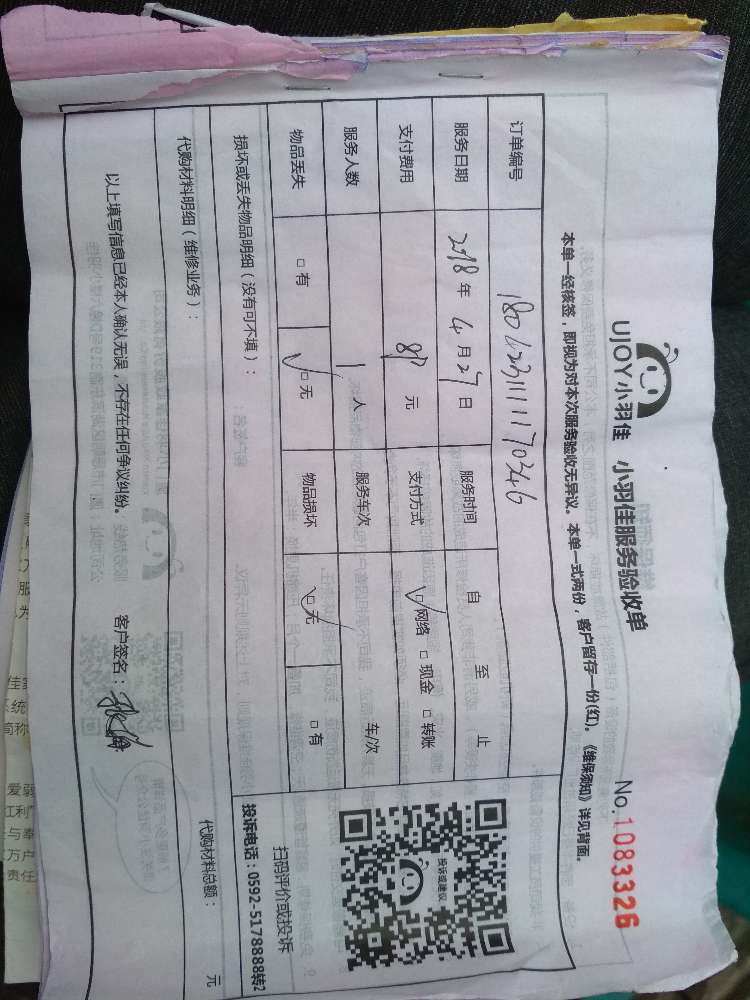 UJOY小羽佳 小羽佳服务验收单
No.1083326
本单一经核签，即视为对本次服务验收无异议。本单一式两份，客户留存一份(红)。《维保须知》详见背面。
订单编号 180423111170346
服务日期 2018年4月27日 服务时间 自 至 止
支付费用 元 支付方式 ☑网络 □现金 □转账
服务人数 1人 服务车次 车/次
物品丢失 □有 ☑无 物品损坏 ☑无 □有
投诉或建议
扫码评价或投诉
投诉电话：0592-5178888转2
损坏或丢失物品明细（没有可不填）：
代购材料明细（维修业务）：
代购材料总额： 元
以上填写信息已经本人确认无误，不存在任何争议纠纷。 客户签名：